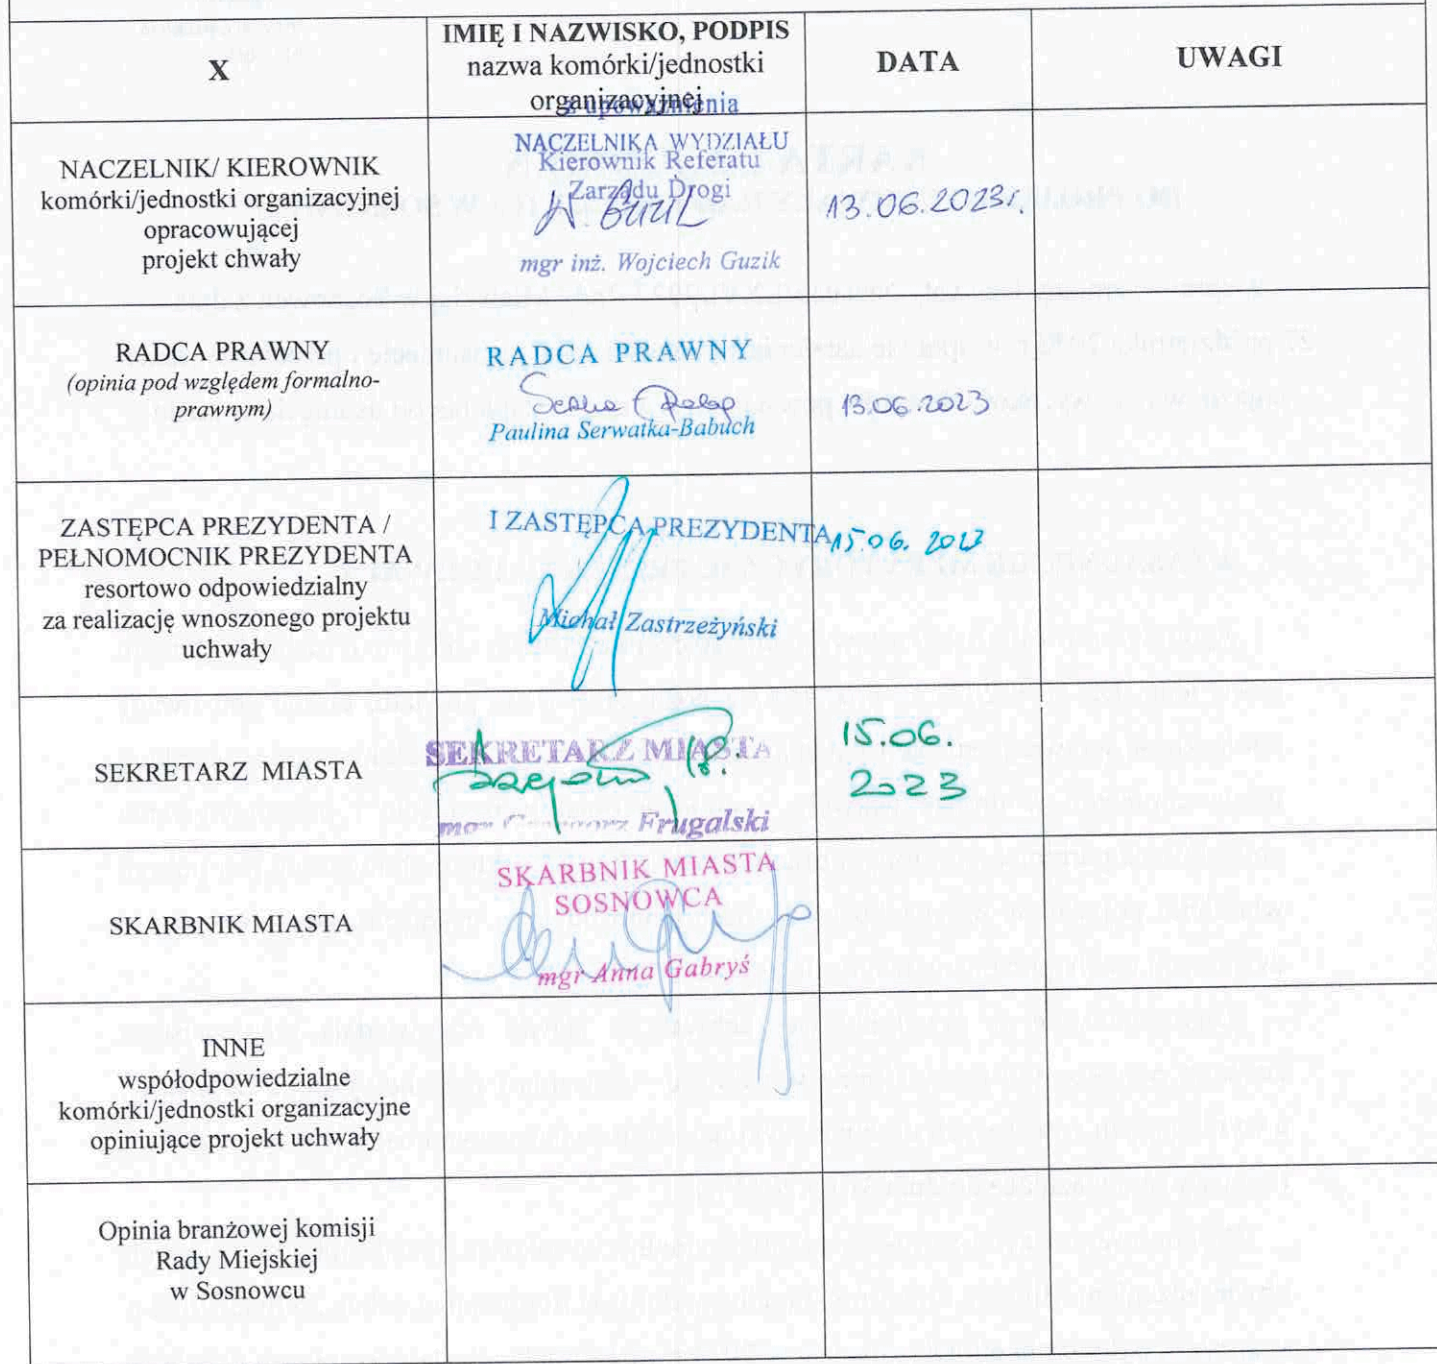 X
IMIĘ I NAZWISKO, PODPIS
nazwa komórki/jednostki
organizacyjnej
DATA
UWAGI
NACZELNIK/ KIEROWNIK
komórki/jednostki organizacyjnej
opracowującej
projekt chwały
z upoważnienia
NACZELNIKA WYDZIAŁU
Kierownik Referatu
Zarządu Drogi
W. Guzik
mgr inż. Wojciech Guzik
13.06.2023r.
RADCA PRAWNY
(opinia pod względem formalno-
prawnym)
RADCA PRAWNY
Paulina Serwatka-Babuch
13.06.2023
ZASTĘPCA PREZYDENTA /
PEŁNOMOCNIK PREZYDENTA
resortowo odpowiedzialny
za realizację wnoszonego projektu
uchwały
I ZASTĘPCA PREZYDENTA
Michał Zastrzeżyński
15.06. 2023
SEKRETARZ MIASTA
SEKRETARZ MIASTA
mgr Grzegorz Frugalski
15.06.
2023
SKARBNIK MIASTA
SKARBNIK MIASTA
SOSNOWCA
mgr Anna Gabryś
INNE
współodpowiedzialne
komórki/jednostki organizacyjne
opiniujące projekt uchwały
Opinia branżowej komisji
Rady Miejskiej
w Sosnowcu